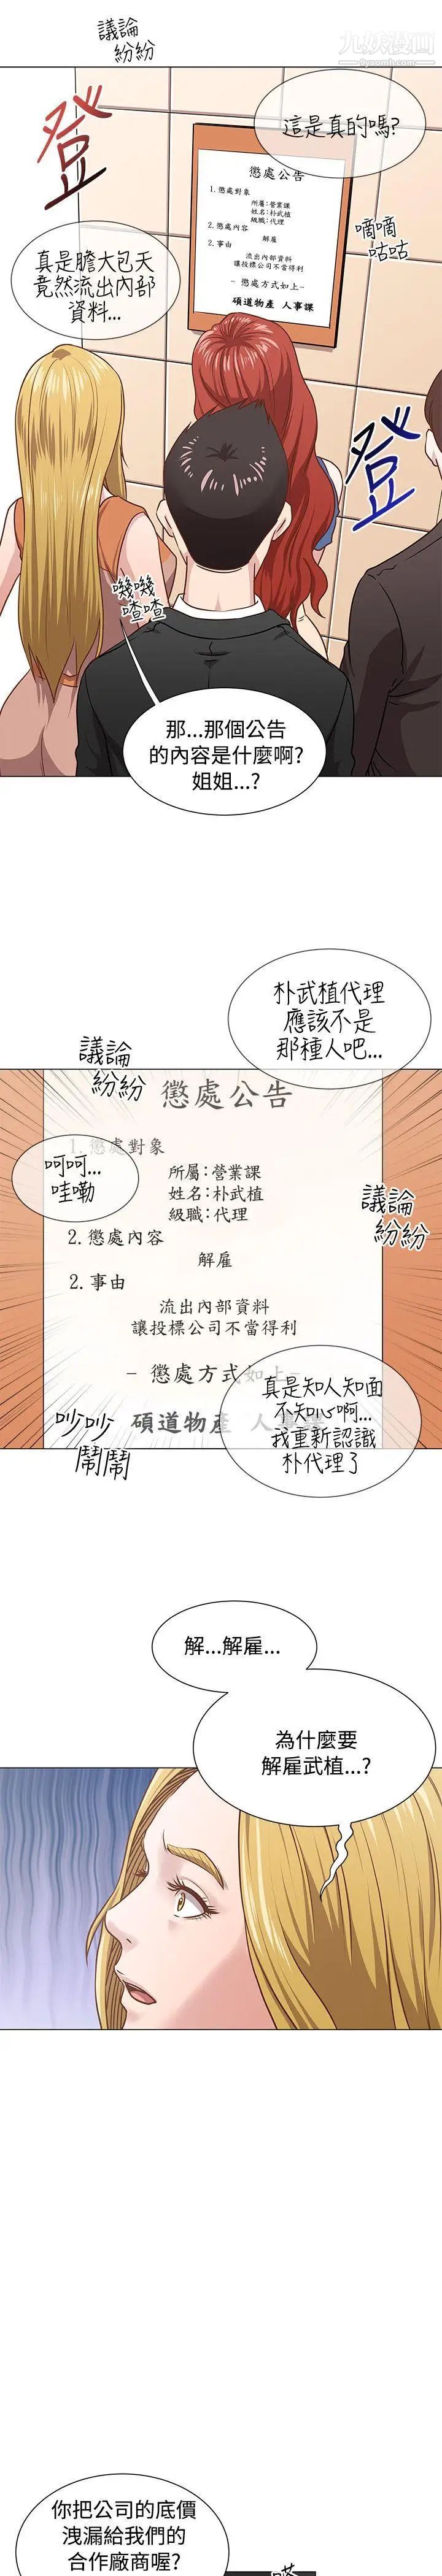 議論
紛紛
九妖漫画
9yaomanhua.com
登
這是真的嗎?
懲處公告
1.懲處對象
所屬:營業課
姓名:朴武植
級職:代理
2.懲處內容
解雇
2.事由
流出內部資料
讓投標公司不當得利
- 懲處方式如上-
碩道物產 人事課
嘀嘀
咕咕
真是膽大包天
竟然流出內部
資料...
登
嘰嘰
喳喳
那...那個公告
的內容是什麼啊?
姐姐...?
朴武植代理
應該不是
那種人吧...
議論
紛紛
懲處公告
1.懲處對象
呵呵...
哇嘞
所屬:營業課
姓名:朴武植
級職:代理
議論
紛紛
2.懲處內容
解雇
2.事由
流出內部資料
讓投標公司不當得利
- 懲處方式如上-
真是知人知面
不知心啊...
我重新認識
朴代理了
碩道物產 人事課
吵吵
鬧鬧
解...解雇...
為什麼要
解雇武植...?
你把公司的底價
洩漏給我們的
合作廠商喔?